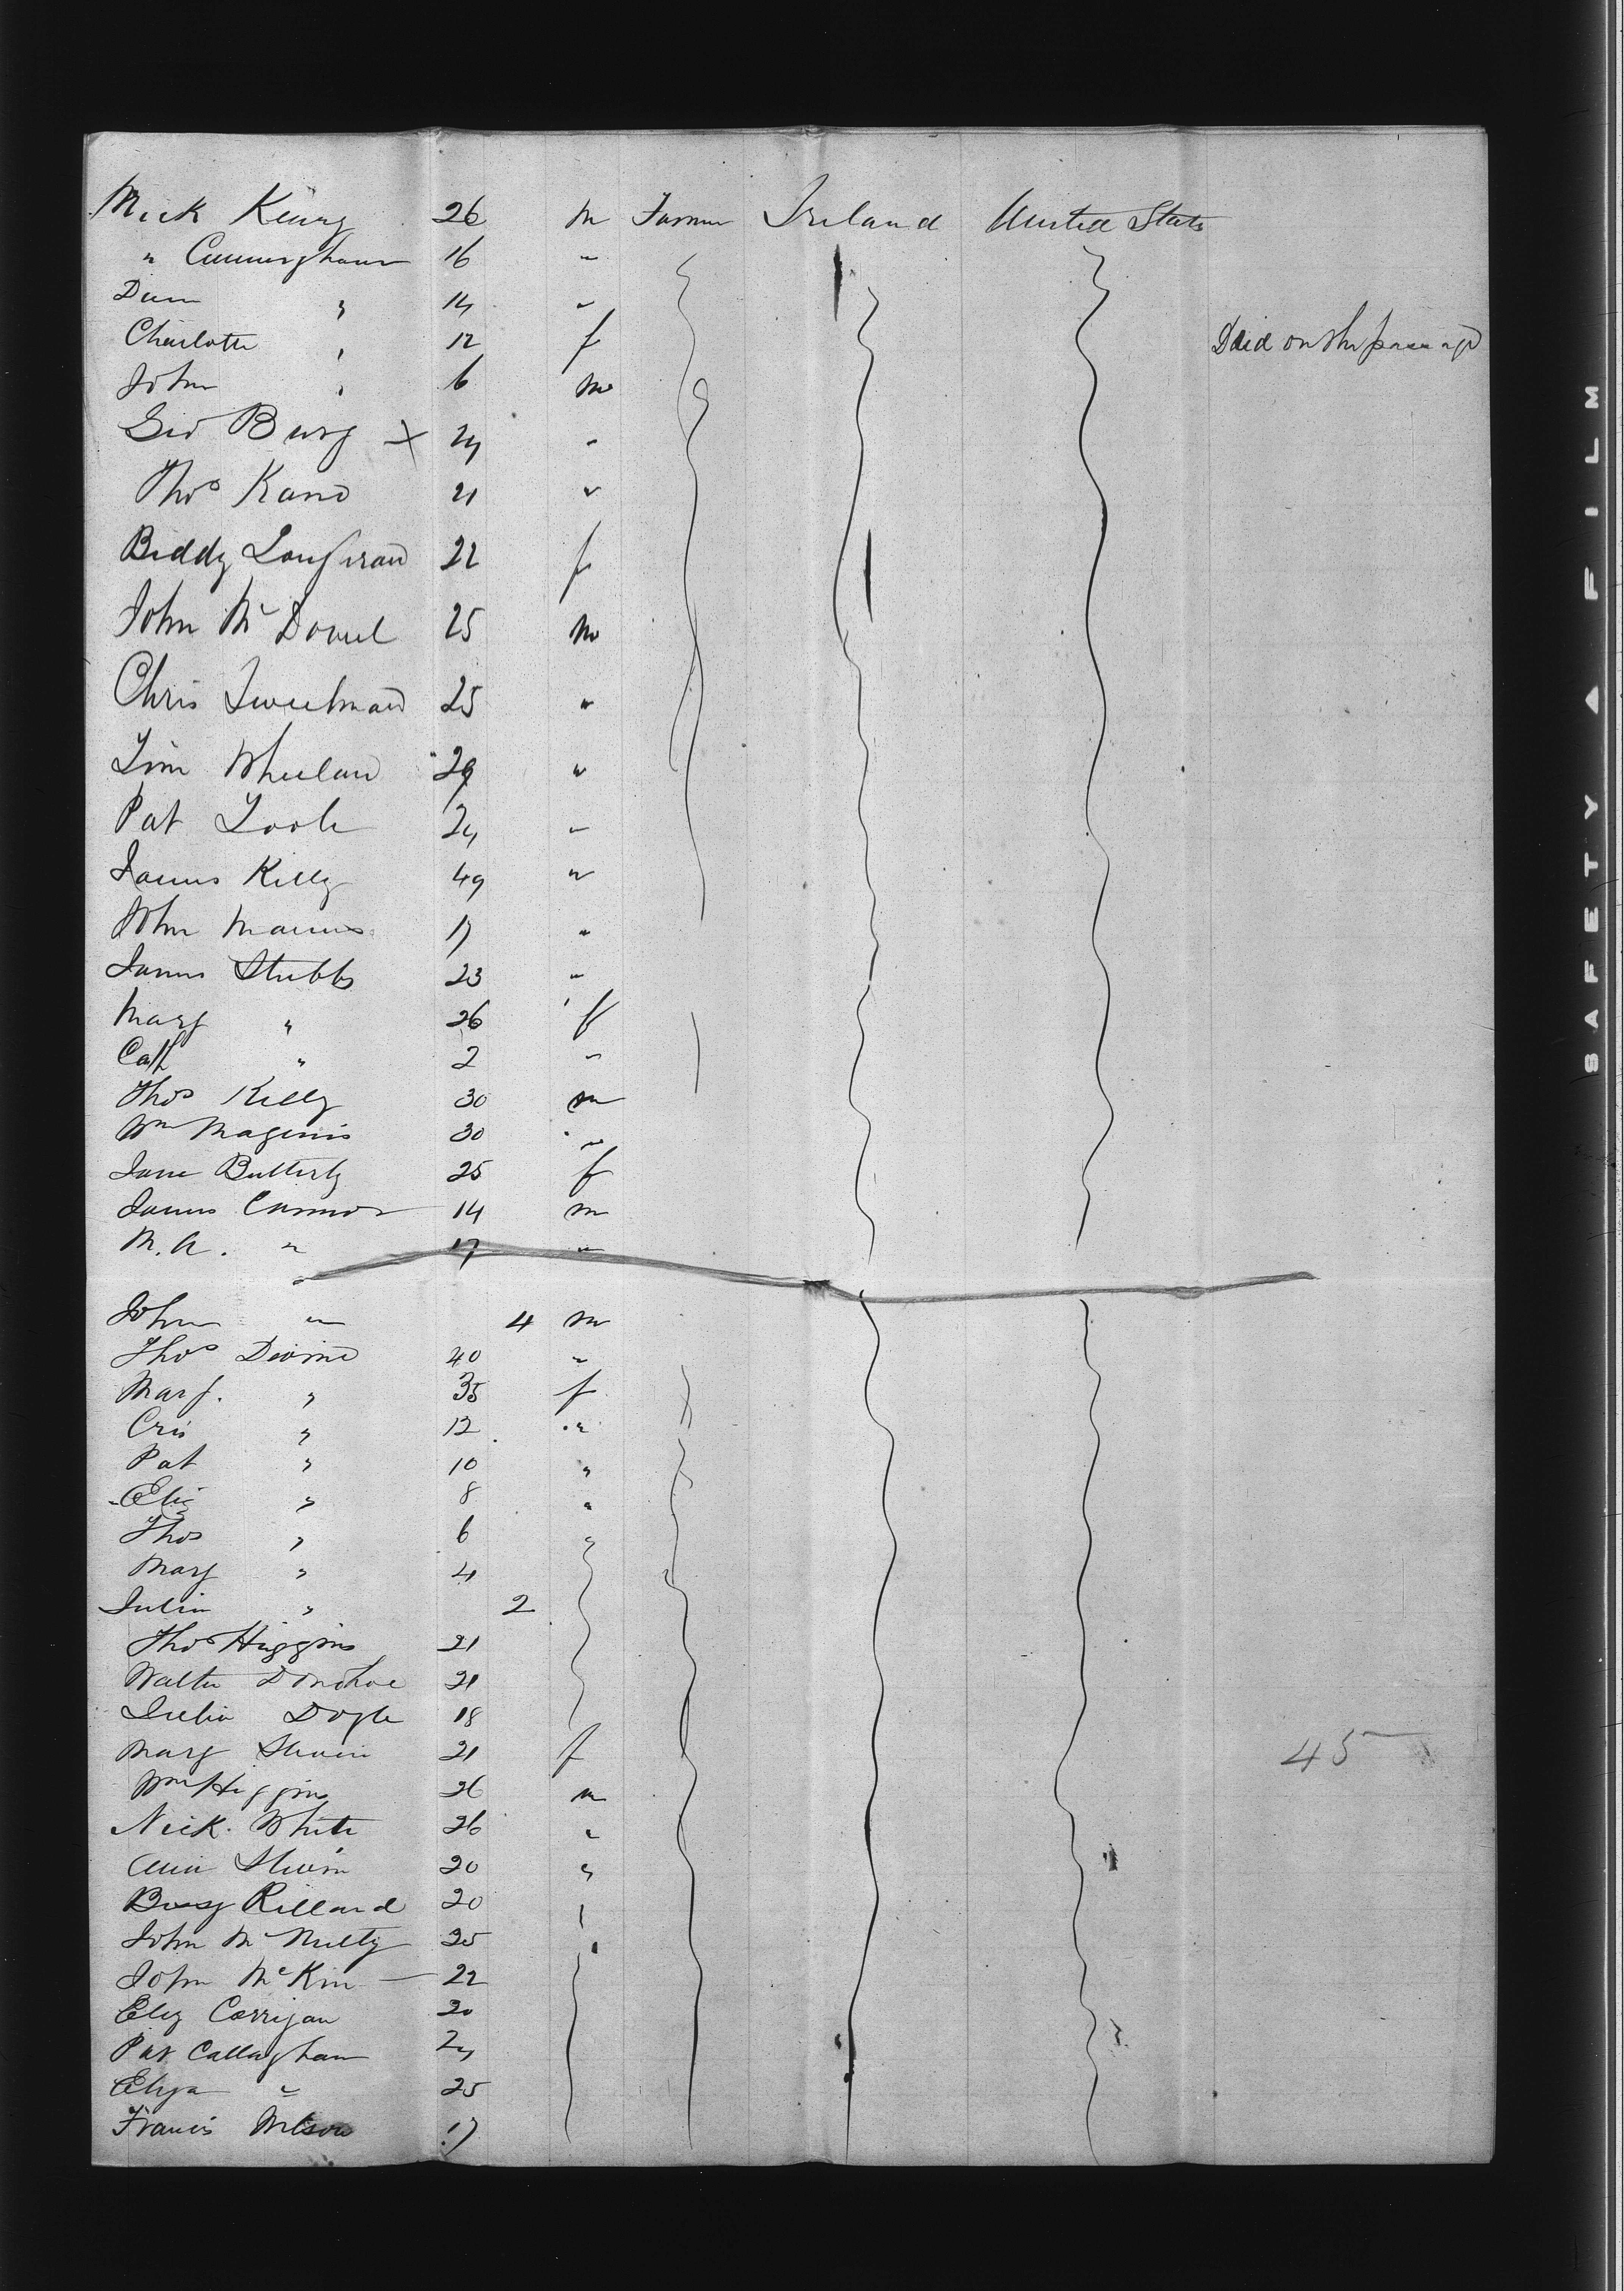 Mick Keary 26 m Farmer Ireland United States
" Cunningham 16 "
" 14 "
Charlotte " 12 f Died on the passage
John " 6 m
Geo Burg × 24 "
Thos Kane 21 "
Biddy 22 f
John Mc Dowel 25 m
Chris Sweetman 25 "
Tim Wheelan 29 "
Pat Toole 24 "
James Kelly 49 "
John Mannes 17 "
James Stubbs 23 "
Mary " 26 f
Cath " 2 "
Thos Kelly 30 m
Wm Maginis 30 "
Jane Butterly 25 f
James Connor 14 m
M. A. " 17 "
John " 4 m
Thos Devine 40 "
Marg. " 35 f
Cris " 12 "
Pat " 10 "
Eliz " 8 "
Thos " 6 "
Mary " 4
Julia " 2
Thos Higgins 21
Walter Donohoe 21
Julia Doyle 18
Mary Slevin 21 f 45
Wm Higgins 26 m
Nick White 26 "
Ann Slevin 20 "
Rilland 20
John Mc Nulty 25
John McKim 22
Eliz Corrigan 20
Pat Callaghan 24
Eliza " 25
Francis Wilson 17
SAFETY ▲ FILM